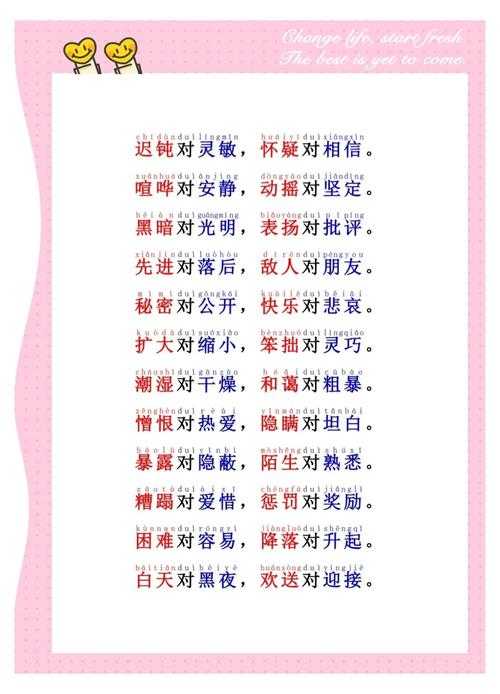 Change life, start fresh
The best is yet to come.
chí dùn duì líng mǐn huái yí duì xiāng xìn
迟钝对灵敏，怀疑对相信。
xuān huá duì ān jìng dòng yáo duì jiān dìng
喧哗对安静，动摇对坚定。
hēi àn duì guāng míng biǎo yáng duì pī píng
黑暗对光明，表扬对批评。
xiān jìn duì luò hòu dí rén duì péng you
先进对落后，敌人对朋友。
mì mì duì gōng kāi kuài lè duì bēi āi
秘密对公开，快乐对悲哀。
kuò dà duì suō xiǎo bèn zhuō duì líng qiǎo
扩大对缩小，笨拙对灵巧。
cháo shī duì gān zào hé ǎi duì cū bào
潮湿对干燥，和蔼对粗暴。
zēng hèn duì rè ài yǐn mán duì tǎn bái
憎恨对热爱，隐瞒对坦白。
bào lù duì yǐn bì mò shēng duì shú xī
暴露对隐蔽，陌生对熟悉。
zāo tà duì ài xī chéng fá duì jiǎng lì
糟蹋对爱惜，惩罚对奖励。
kùn nan duì róng yì jiàng luò duì shēng qǐ
困难对容易，降落对升起。
bái tiān duì hēi yè huān sòng duì yíng jiē
白天对黑夜，欢送对迎接。